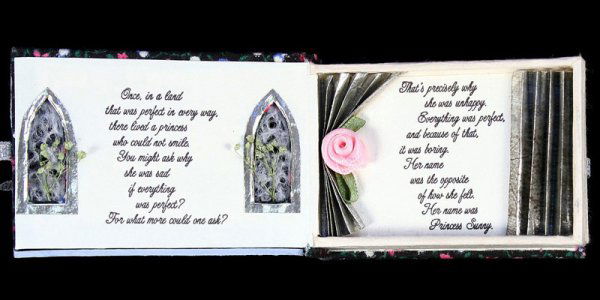 Once, in a land
that was perfect in every way,
there lived a princess
who could not smile.
You might ask why
she was sad
if everything
was perfect?
For what more could one ask?
That's precisely why
she was unhappy.
Everything was perfect,
and because of that,
it was boring.
Her name
was the opposite
of how she felt.
Her name was
Princess Sunny.